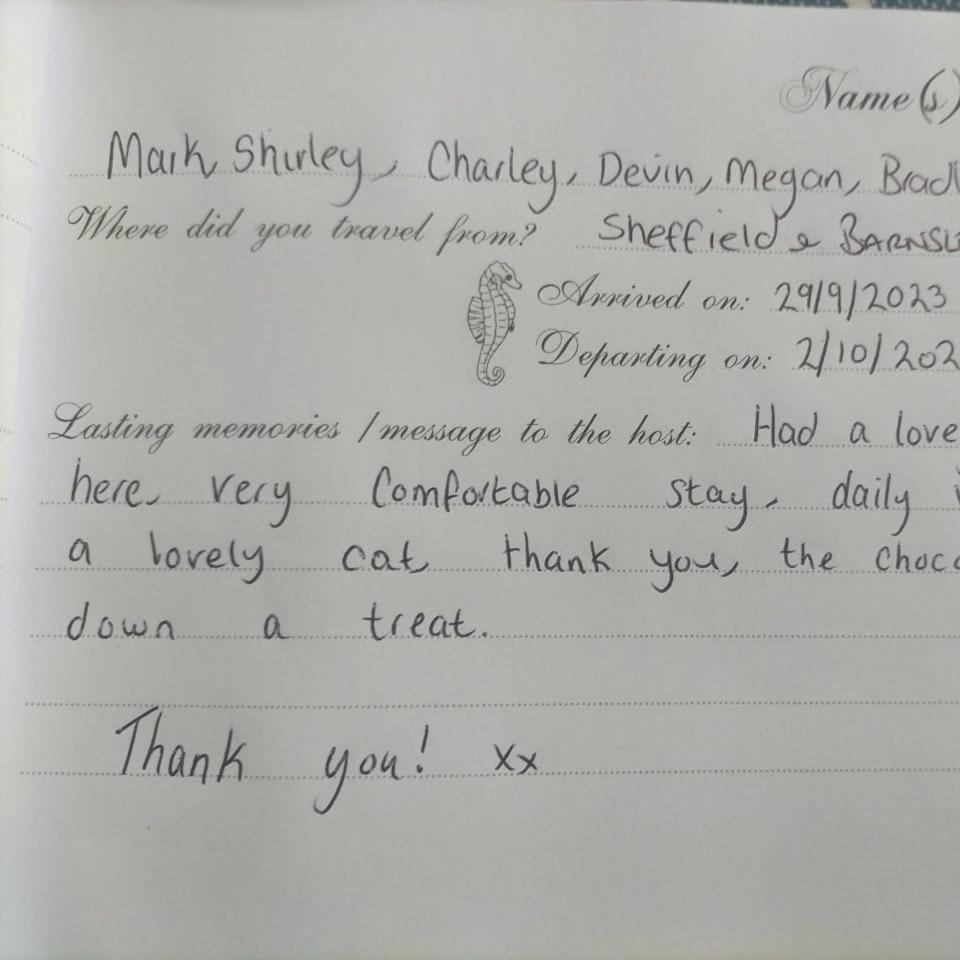 Name(s)
Mark, Shirley, Charley, Devin, Megan, Brad
Where did you travel from? Sheffield & BARNSL
Arrived on: 29/9/2023
Departing on: 2/10/202
Lasting memories / message to the host: Had a love
here, very Comfortable stay, daily
a lovely cat, thank you, the choc
down a treat.
Thank you! xx